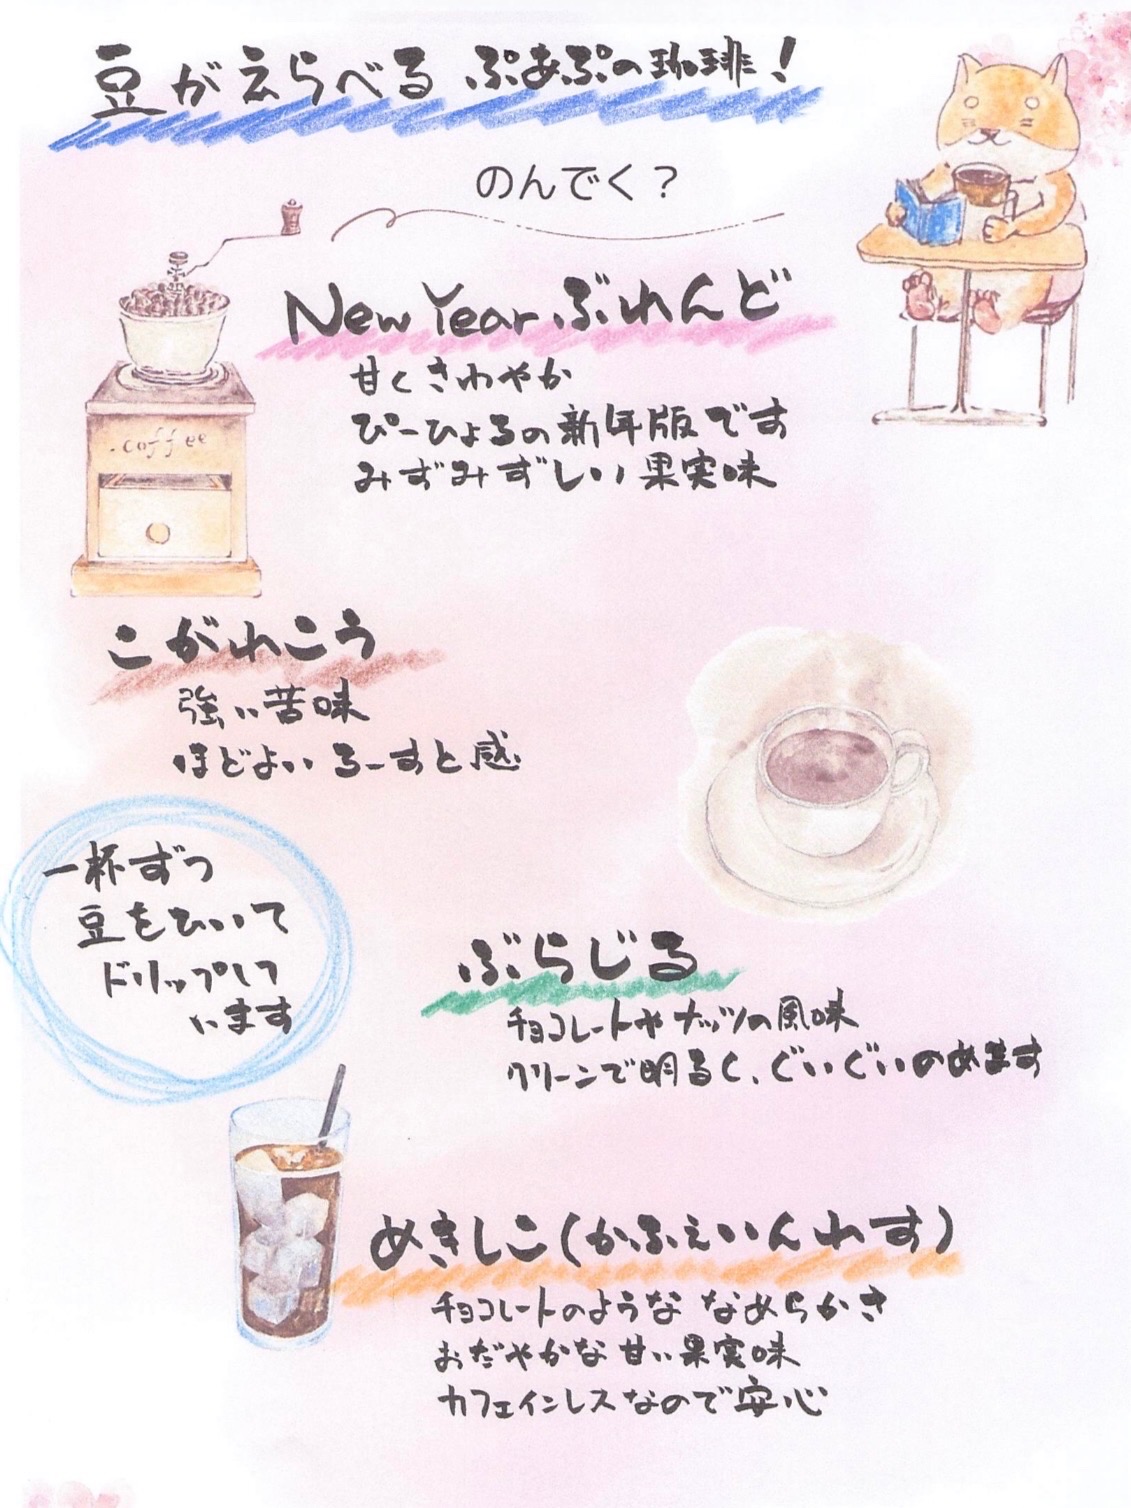 豆がえらべる ぷあぷの珈琲!
のんでく?
New Year ぶれんど
甘くさわやか
ぴーひょろの新年版です
みずみずしい果実味
.coffee
こがれこう
強い苦味
ほどよいろーすと感
一杯ずつ
豆をひいて
ドリップして
います
ぶらじる
チョコレートやナッツの風味
クリーンで明るく、ぐいぐいのめます
めきしこ(かふぇいんれす)
チョコレートのような なめらかさ
おだやかな甘い果実味
カフェインレスなので安心